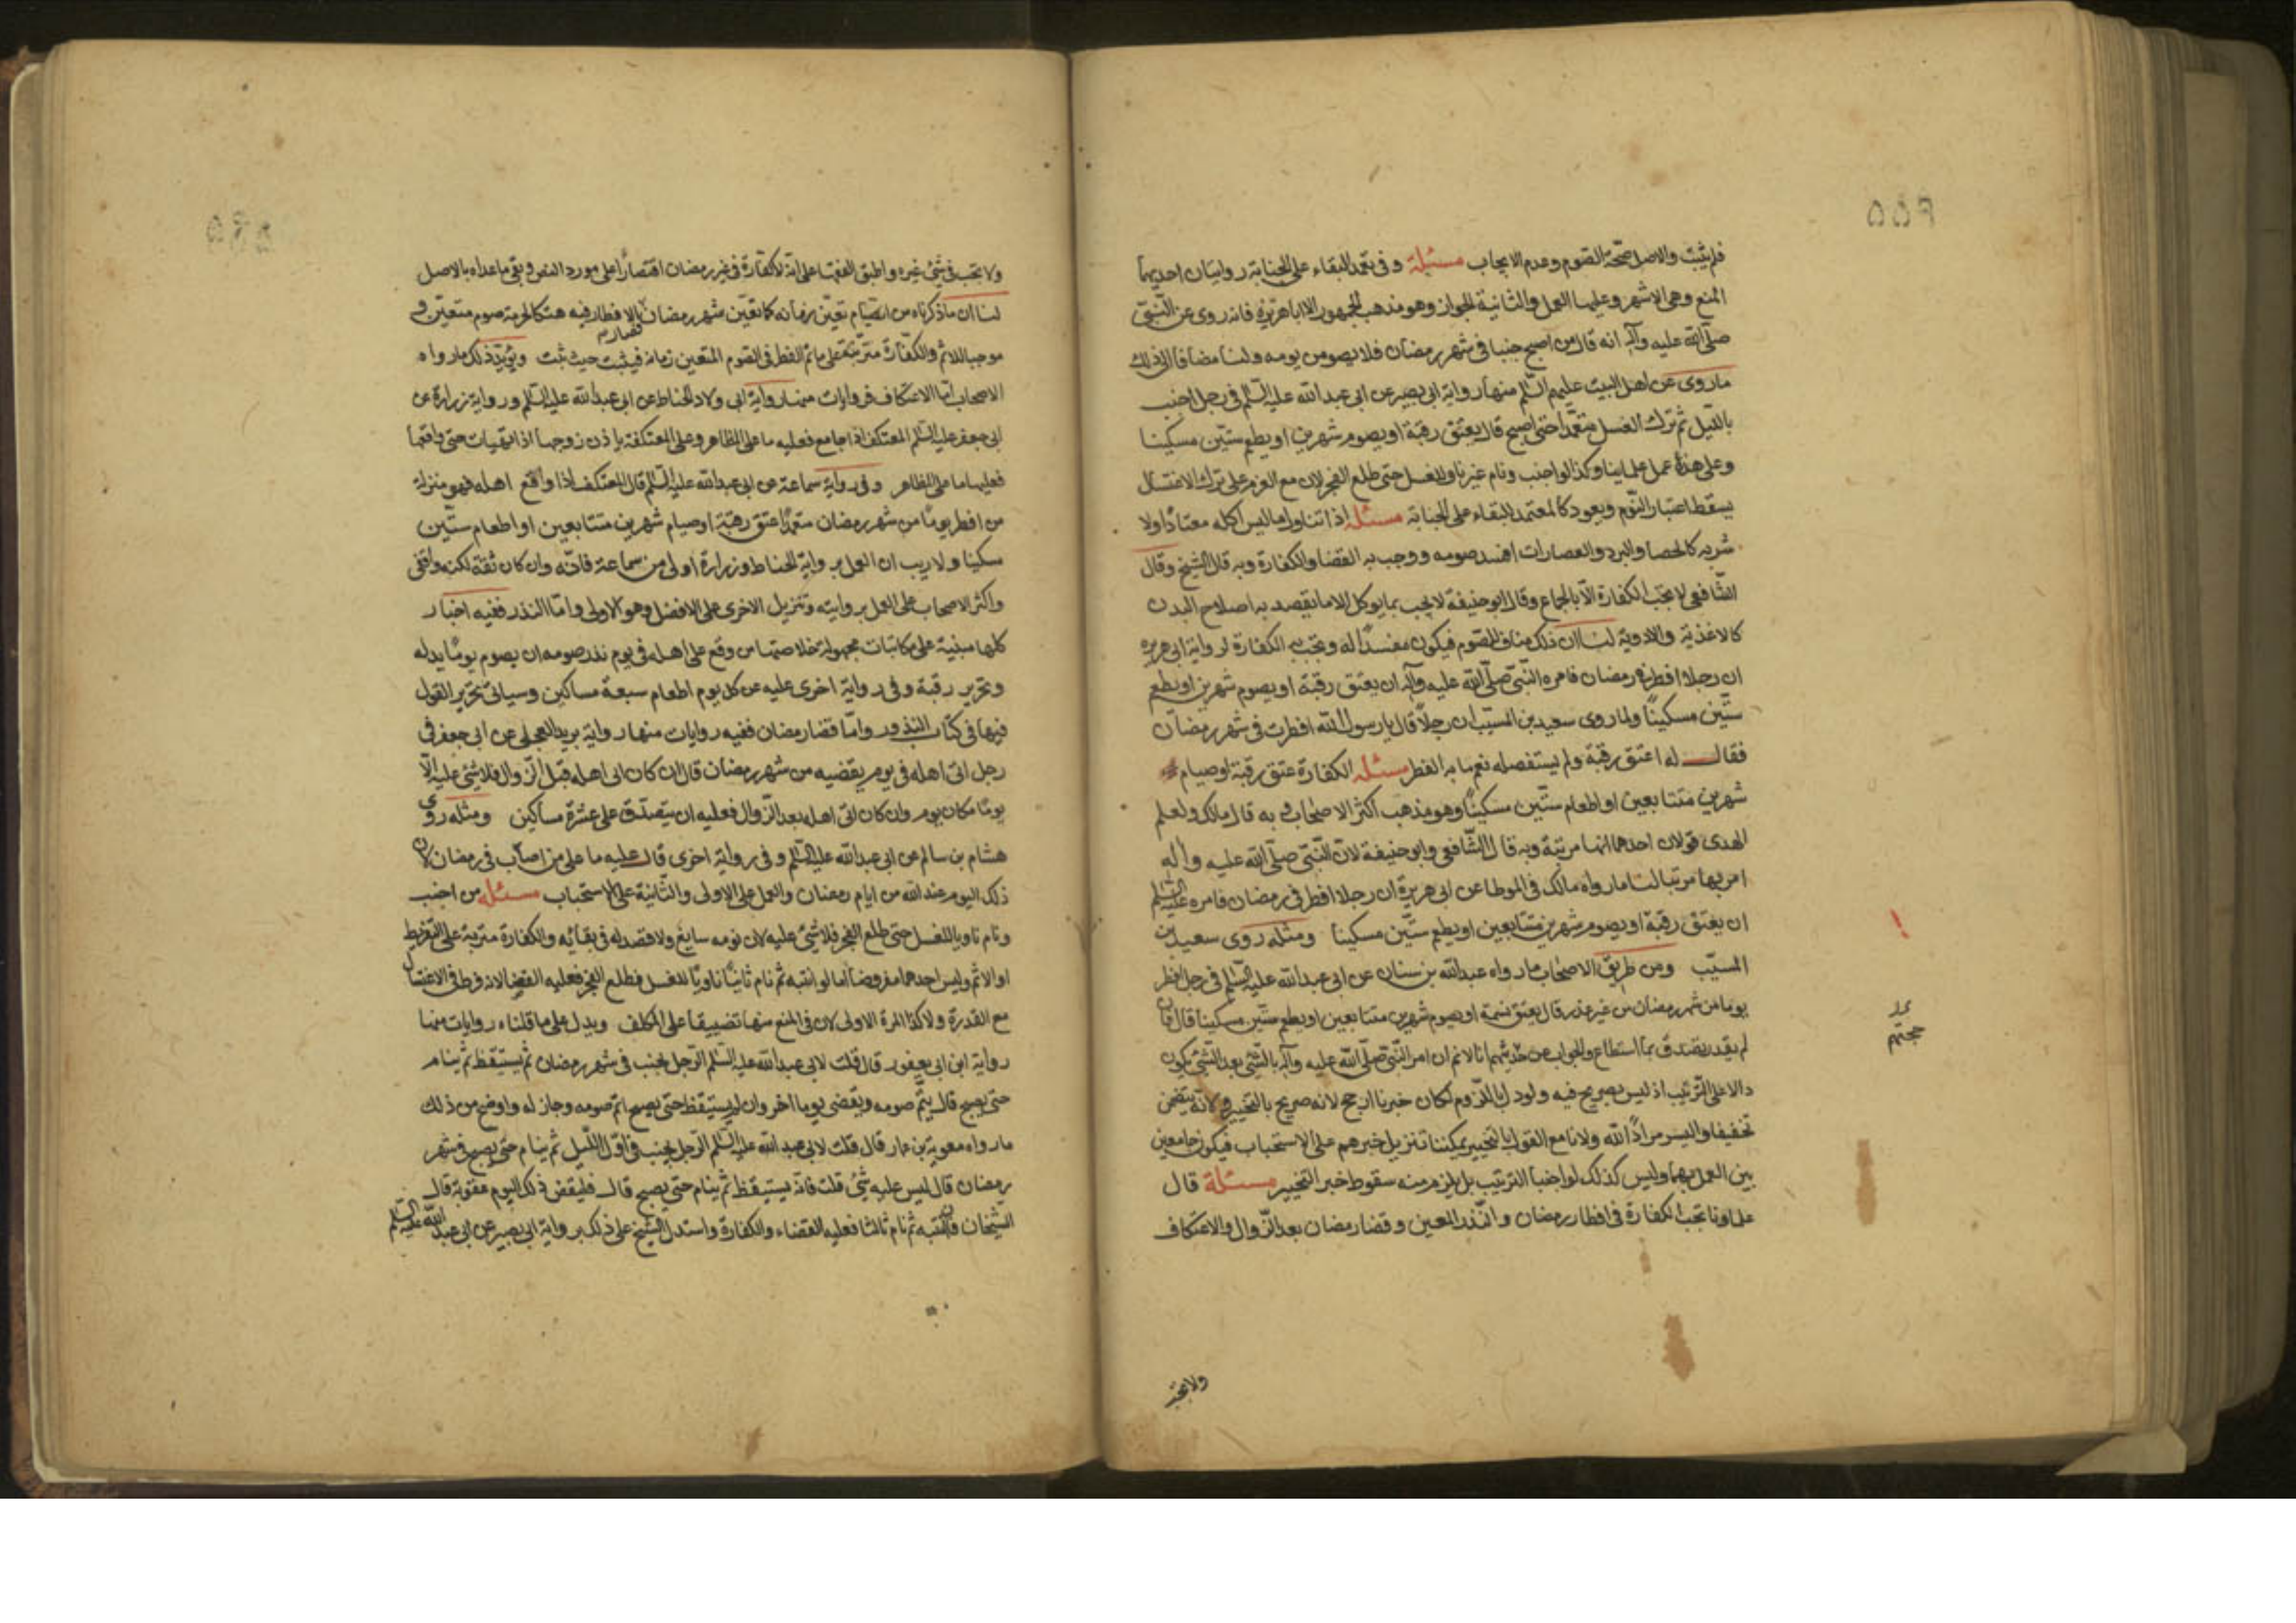 فلم يثبت والاصل صحة الصوم وعدم الايجاب مسئلة وفى تعمد البقاء على الجنابة روايتان احديهما
المنع وهى الاشهر وعليها العمل والثانية الجواز وهو مذهب الجمهور الا ابا هريرة فانه روى عن النبى
صلى الله عليه وآله انه قال من اصبح جنبا فى شهر رمضان فلا يصومن يومه ولنا مضافا الى ذلك
ما روى عن اهل البيت عليهم السلم منها رواية ابى بصير عن ابى عبد الله عليه السلم فى رجل اجنب
بالليل ثم ترك الغسل متعمدا حتى اصبح قال يعتق رقبة او يصوم شهرين او يطعم ستين مسكينا
وعلى هذا عمل علماينا وكذا لو اجنب ونام غير ناو للغسل حتى طلع الفجر لان مع العزم على ترك الاغتسال
يسقط اعتبار النوم ويعود كالمعتمد للبقاء على الجنابة مسئلة اذا تناول ما ليس اكله معتادا ولا
شربه كالحصا والبرد والعصارات افسد صومه ووجب به القضا والكفارة وبه قال الشيخ وقال
الشافعى لا تجب الكفارة الا بالجماع وقال ابو حنيفة لا يجب بما يوكل الا ما يقصد به اصلاح البدن
كالاغذية والادوية لنا ان ذلك مناف للصوم فيكون مفسدا له وتجب به الكفارة لرواية ابى هريرة
ان رجلا افطر فى رمضان فامره النبى صلى الله عليه وآله ان يعتق رقبة او يصوم شهرين او يطعم
ستين مسكينا ولما روى سعيد بن المسيب ان رجلا قال يا رسول الله افطرت فى شهر رمضان
فقال له اعتق رقبة ولم يستفصله نعم ما به الفطر مسئلة الكفارة عتق رقبة او صيام
شهرين متتابعين او اطعام ستين مسكينا وهو مذهب اكثر الاصحاب وبه قال مالك ولعلم
الهدى قولان احدهما انها مرتبة وبه قال الشافعى وابو حنيفة لان النبى صلى الله عليه وآله
امر بها مرتبا لنا ما رواه مالك فى الموطا عن ابى هريرة ان رجلا افطر فى رمضان فامره عليه السلم
ان يعتق رقبة او يصوم شهرين متتابعين او يطعم ستين مسكينا ومثله روى سعيد بن
المسيب ومن طريق الاصحاب ما رواه عبد الله بن سنان عن ابى عبد الله عليه السلم فى رجل افطر
يوما من شهر رمضان من غير عذر قال يعتق نسمة او يصوم شهرين متتابعين او يطعم ستين مسكينا قال فان
لم يقدر تصدق بما استطاع والجواب عن حديثهم انا لا نم ان امر النبى صلى الله عليه وآله بالشئ بعد الشئ يكون
دالا على الترتيب اذ ليس بصريح فيه ولو دل باللزوم لكان خبرنا ارجح لانه صريح بالتخيير ولانه يتضمن
تخفيفا واليسر مراد الله ولانا مع القول بالتخيير يمكننا تنزيل خبرهم على الاستحباب فيكون جامعين
بين العمل بهما وليس كذلك لو اوجبنا الترتيب بل يلزم منه سقوط خبر التخيير مسئلة قال
علماونا تجب الكفارة فى افطار رمضان والنذر المعين وقضا رمضان بعد الزوال والاعتكاف
حجتهم
ولا تجب
٥٥٦
ولا تجب فى شئ غيره واطبق الفقها على انه لا كفارة فى غير رمضان اقتصارا على مورد النص وبقى ما عداه بالاصل
لنا ان ما ذكرناه من الصيام تعين زمانه كما تعين شهر رمضان فالافطار فيه هتك لحرمة صوم متعين
فصار
موجبا للاثم والكفارة مترتبة على ماثم الفطر فى الصوم المتعين زمانه فيثبت حيث ثبت ويؤيد ذلك ما رواه
الاصحاب اما الاعتكاف فروايات منها رواية ابى ولاد الحناط عن ابى عبد الله عليه السلم ورواية زرارة عن
ابى جعفر عليه السلم المعتكف اذا جامع فعليه ما على المظاهر وعلى المعتكفة باذن زوجها اذا حتى واقعها
فعليها ما على المظاهر وفى رواية سماعة عن ابى عبد الله عليه السلم قال المعتكف اذا واقع اهله فهو بمنزلة
من افطر يوما من شهر رمضان متعمدا عتق رقبة او صيام شهرين متتابعين او اطعام ستين
مسكينا ولا ريب ان العمل برواية الحناط وزرارة اولى من سماعة فانه وان كان ثقة لكنه واقفى
واكثر الاصحاب على العمل بروايته وتنزيل الاخرى على الافضل وهو الاولى واما النذر ففيه اخبار
كلها مبنية على مكاتبات مجهولة خلاصتها من وقع على اهله فى يوم نذر صومه ان يصوم يوما بدله
وتحرير رقبة وفى رواية اخرى عليه عن كل يوم اطعام سبعة مساكين وسياتى تحرير القول
فيها فى كتاب النذور واما قضا رمضان ففيه روايات منها رواية بريد العجلى عن ابى جعفر فى
رجل اتى اهله فى يوم يقضيه من شهر رمضان قال ان كان اتى اهله قبل الزوال فلا شئ عليه الا
يوما مكان يوم وان كان اتى اهله بعد الزوال فعليه ان يتصدق على عشرة مساكين ومثله روى
هشام بن سالم عن ابى عبد الله عليه السلم وفى رواية اخرى قال عليه ما على من اصاب فى رمضان لان
ذلك اليوم عند الله من ايام رمضان والعمل على الاولى والثانية على الاستحباب مسئلة من اجنب
ونام ناويا للغسل حتى طلع الفجر فلا شئ عليه لان نومه سايغ ولا قصد له فى بقائه والكفارة مترتبة على التفريط
او الاثم وليس احدهما مفروضا اما لو انتبه ثم نام ثانيا ناويا للغسل فطلع الفجر فعليه القضا لانه فرط فى الاغتسال
مع القدرة ولا كذا المرة الاولى لان فى المنع منها تضييقا على المكلف ويدل على ما قلناه روايات منها
رواية ابن ابى يعفور قال قلت لابى عبد الله عليه السلم الرجل يجنب فى شهر رمضان ثم يستيقظ ثم ينام
حتى يصبح قال يتم صومه ويقضى يوما اخر وان لم يستيقظ حتى يصبح اتم صومه وجاز له واوضح من ذلك
ما رواه معوية بن عمار قال قلت لابى عبد الله عليه السلم الرجل يجنب فى اول الليل ثم ينام حتى يصبح فى شهر
رمضان قال ليس عليه شئ قلت فانه يستيقظ ثم ينام حتى يصبح قال فليقض ذلك اليوم عقوبة قال
الشيخان فان انتبه ثم نام ثالثا فعليه القضاء والكفارة واستدل الشيخ على ذلك برواية ابى بصير عن ابى عبد الله عليه السلم